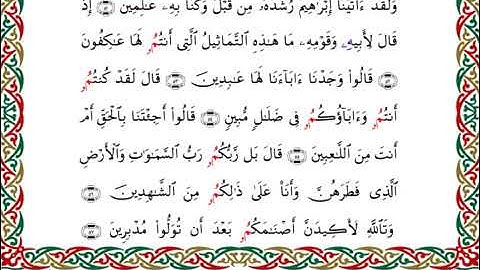 وَلَقَدْ ءَاتَيْنَا إِبْرَٰهِيمَ رُشْدَهُۥ مِن قَبْلُ وَكُنَّا بِهِۦ عَٰلِمِينَ ٥١ إِذْ
قَالَ لِأَبِيهِۦ وَقَوْمِهِۦ مَا هَٰذِهِ ٱلتَّمَاثِيلُ ٱلَّتِى أَنتُمُۥ لَهَا عَٰكِفُونَ
٥٢ قَالُوا۟ وَجَدْنَا ءَابَآءَنَا لَهَا عَٰبِدِينَ ٥٣ قَالَ لَقَدْ كُنتُمُۥ
أَنتُمُۥ وَءَابَآؤُكُمُۥ فِى ضَلَٰلٍ مُّبِينٍ ٥٤ قَالُوٓا۟ أَجِئْتَنَا بِٱلْحَقِّ أَمْ
أَنتَ مِنَ ٱللَّٰعِبِينَ ٥٥ قَالَ بَل رَّبُّكُمُۥ رَبُّ ٱلسَّمَٰوَٰتِ وَٱلْأَرْضِ
ٱلَّذِى فَطَرَهُنَّ وَأَنَا۠ عَلَىٰ ذَٰلِكُمُۥ مِنَ ٱلشَّٰهِدِينَ ٥٦
وَتَٱللَّهِ لَأَكِيدَنَّ أَصْنَٰمَكُمُۥ بَعْدَ أَن تُوَلُّوا۟ مُدْبِرِينَ ٥٧